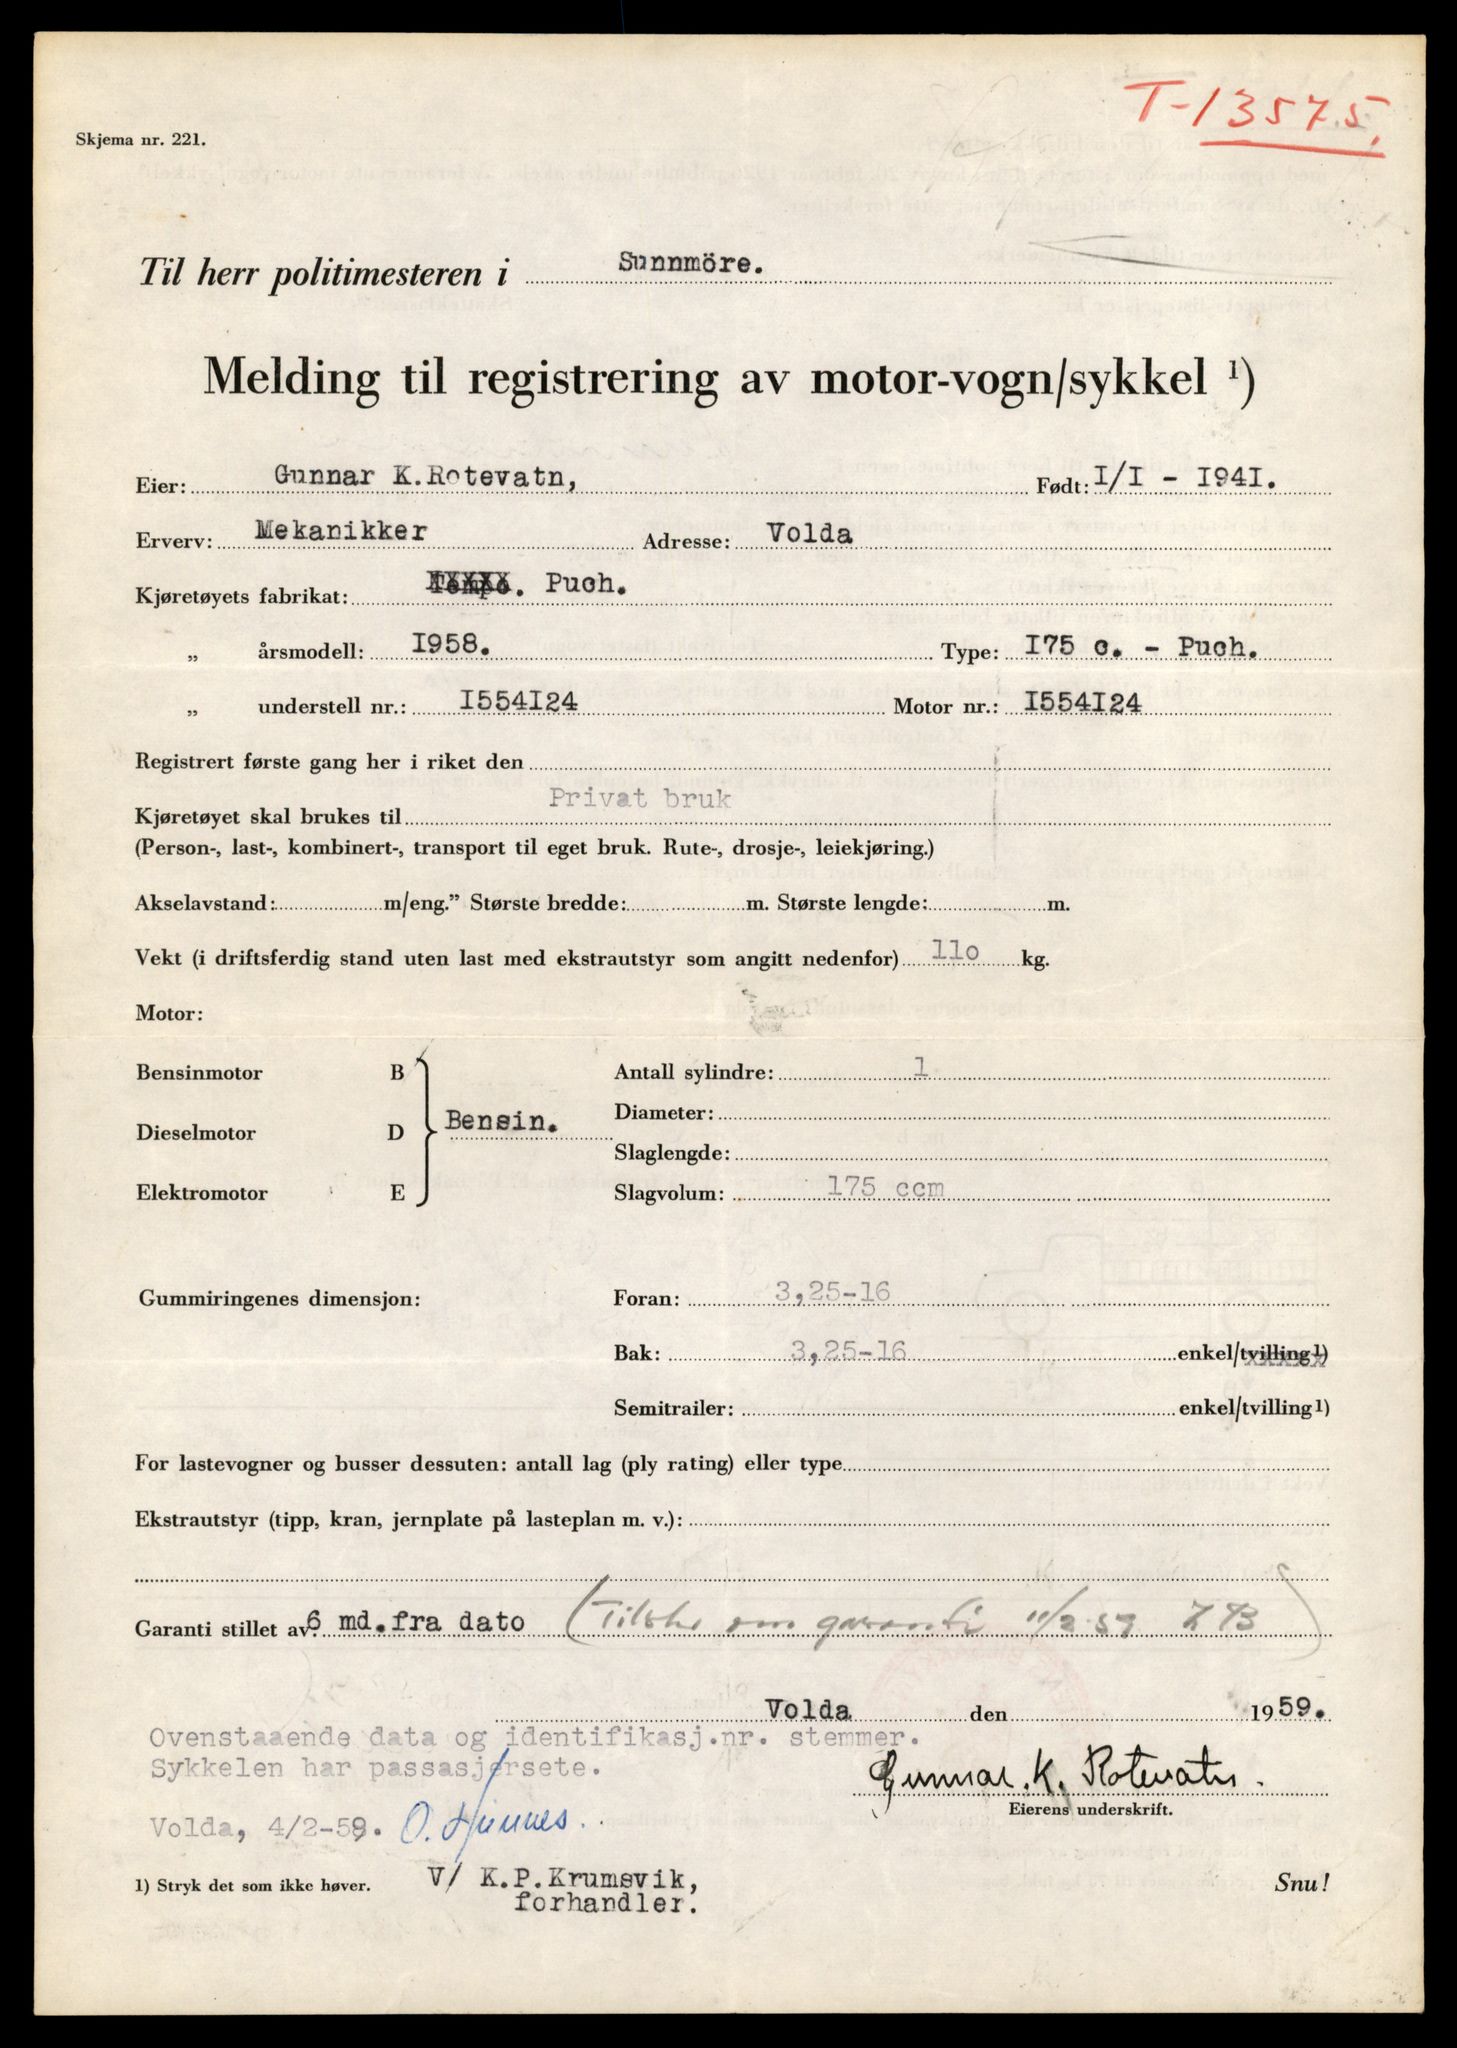 T-13575.
Skjema nr. 221.
Til herr politimesteren i Sunnmöre.
Melding til registrering av motor-vogn/sykkel 1)
Eier: Gunnar K. Rotevatn, Født: I/I - I94I.
Erverv: Mekanikker Adresse: Volda
Kjøretøyets fabrikat: Tempo. Puch.
„ årsmodell: I958. Type: I75 c. - Puch.
„ understell nr.: I554I24 Motor nr.: I554I24
Registrert første gang her i riket den
Kjøretøyet skal brukes til Privat bruk
(Person-, last-, kombinert-, transport til eget bruk. Rute-, drosje-, leiekjøring.)
Akselavstand: m/eng.” Største bredde: m. Største lengde: m.
Vekt (i driftsferdig stand uten last med ekstrautstyr som angitt nedenfor) 11o kg.
Motor:
Bensinmotor B Antall sylindre: 1
Diameter:
Dieselmotor D Bensin.
Slaglengde:
Elektromotor E Slagvolum: 175 ccm
Gummiringenes dimensjon: Foran: 3,25-16
Bak: 3,25-16 enkel/tvilling1)
Semitrailer: enkel/tvilling1)
For lastevogner og busser dessuten: antall lag (ply rating) eller type
Ekstrautstyr (tipp, kran, jernplate på lasteplan m. v.):
Garanti stillet av: 6 md. fra dato (Tilskr om garanti 11/2 59
Volda den 1959.
Ovenstaaende data og identifikasj.nr. stemmer.
Sykkelen har passasjersete.
Gunnar. K. Rotevatn.
Eierens underskrift.
Volda, 4/2-59. O.
1) Stryk det som ikke høver. V/ K.P. Krumsvik, Snu!
forhandler.